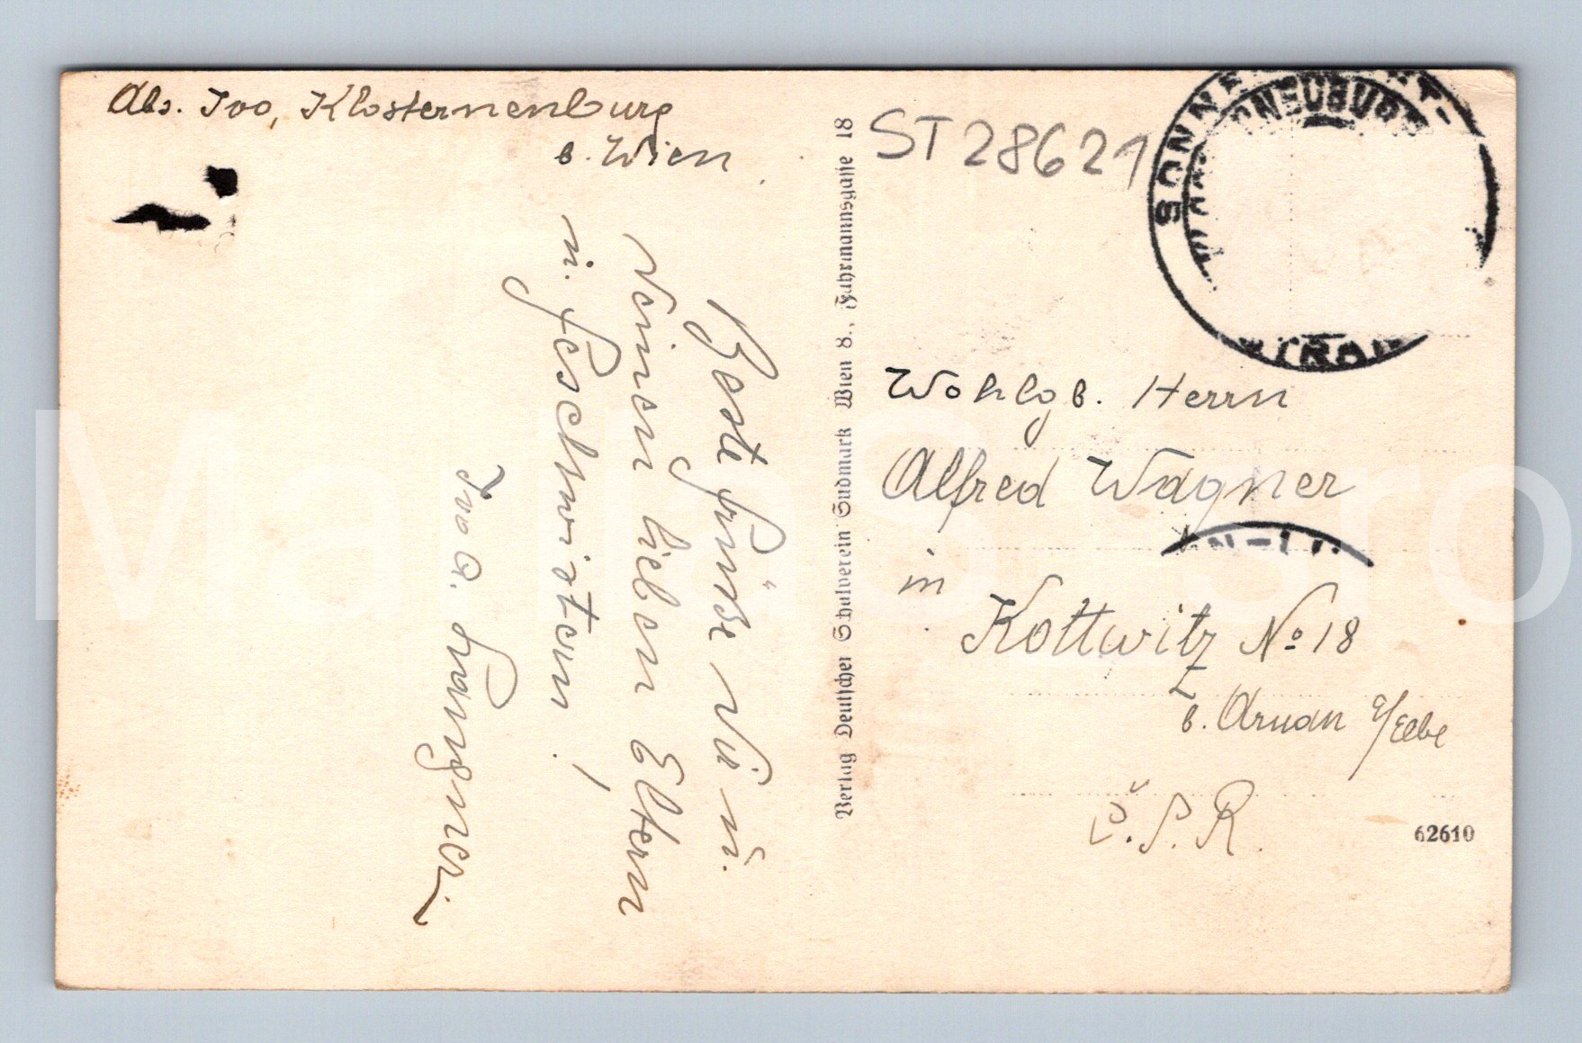 Abs. Ivo, Klosterneuburg
b. Wien
Beste Grüße Dir u.
Deinen lieben Eltern
u. Geschwistern!
Ivo
Verlag Deutscher Schulverein Südmark Wien 8., Fuhrmannsgasse 18
ST 28621
Wohlgb. Herrn
Alfred Wagner
in
Kottwitz No 18
b. Arnau a/Elbe
Č.S.R.
62610